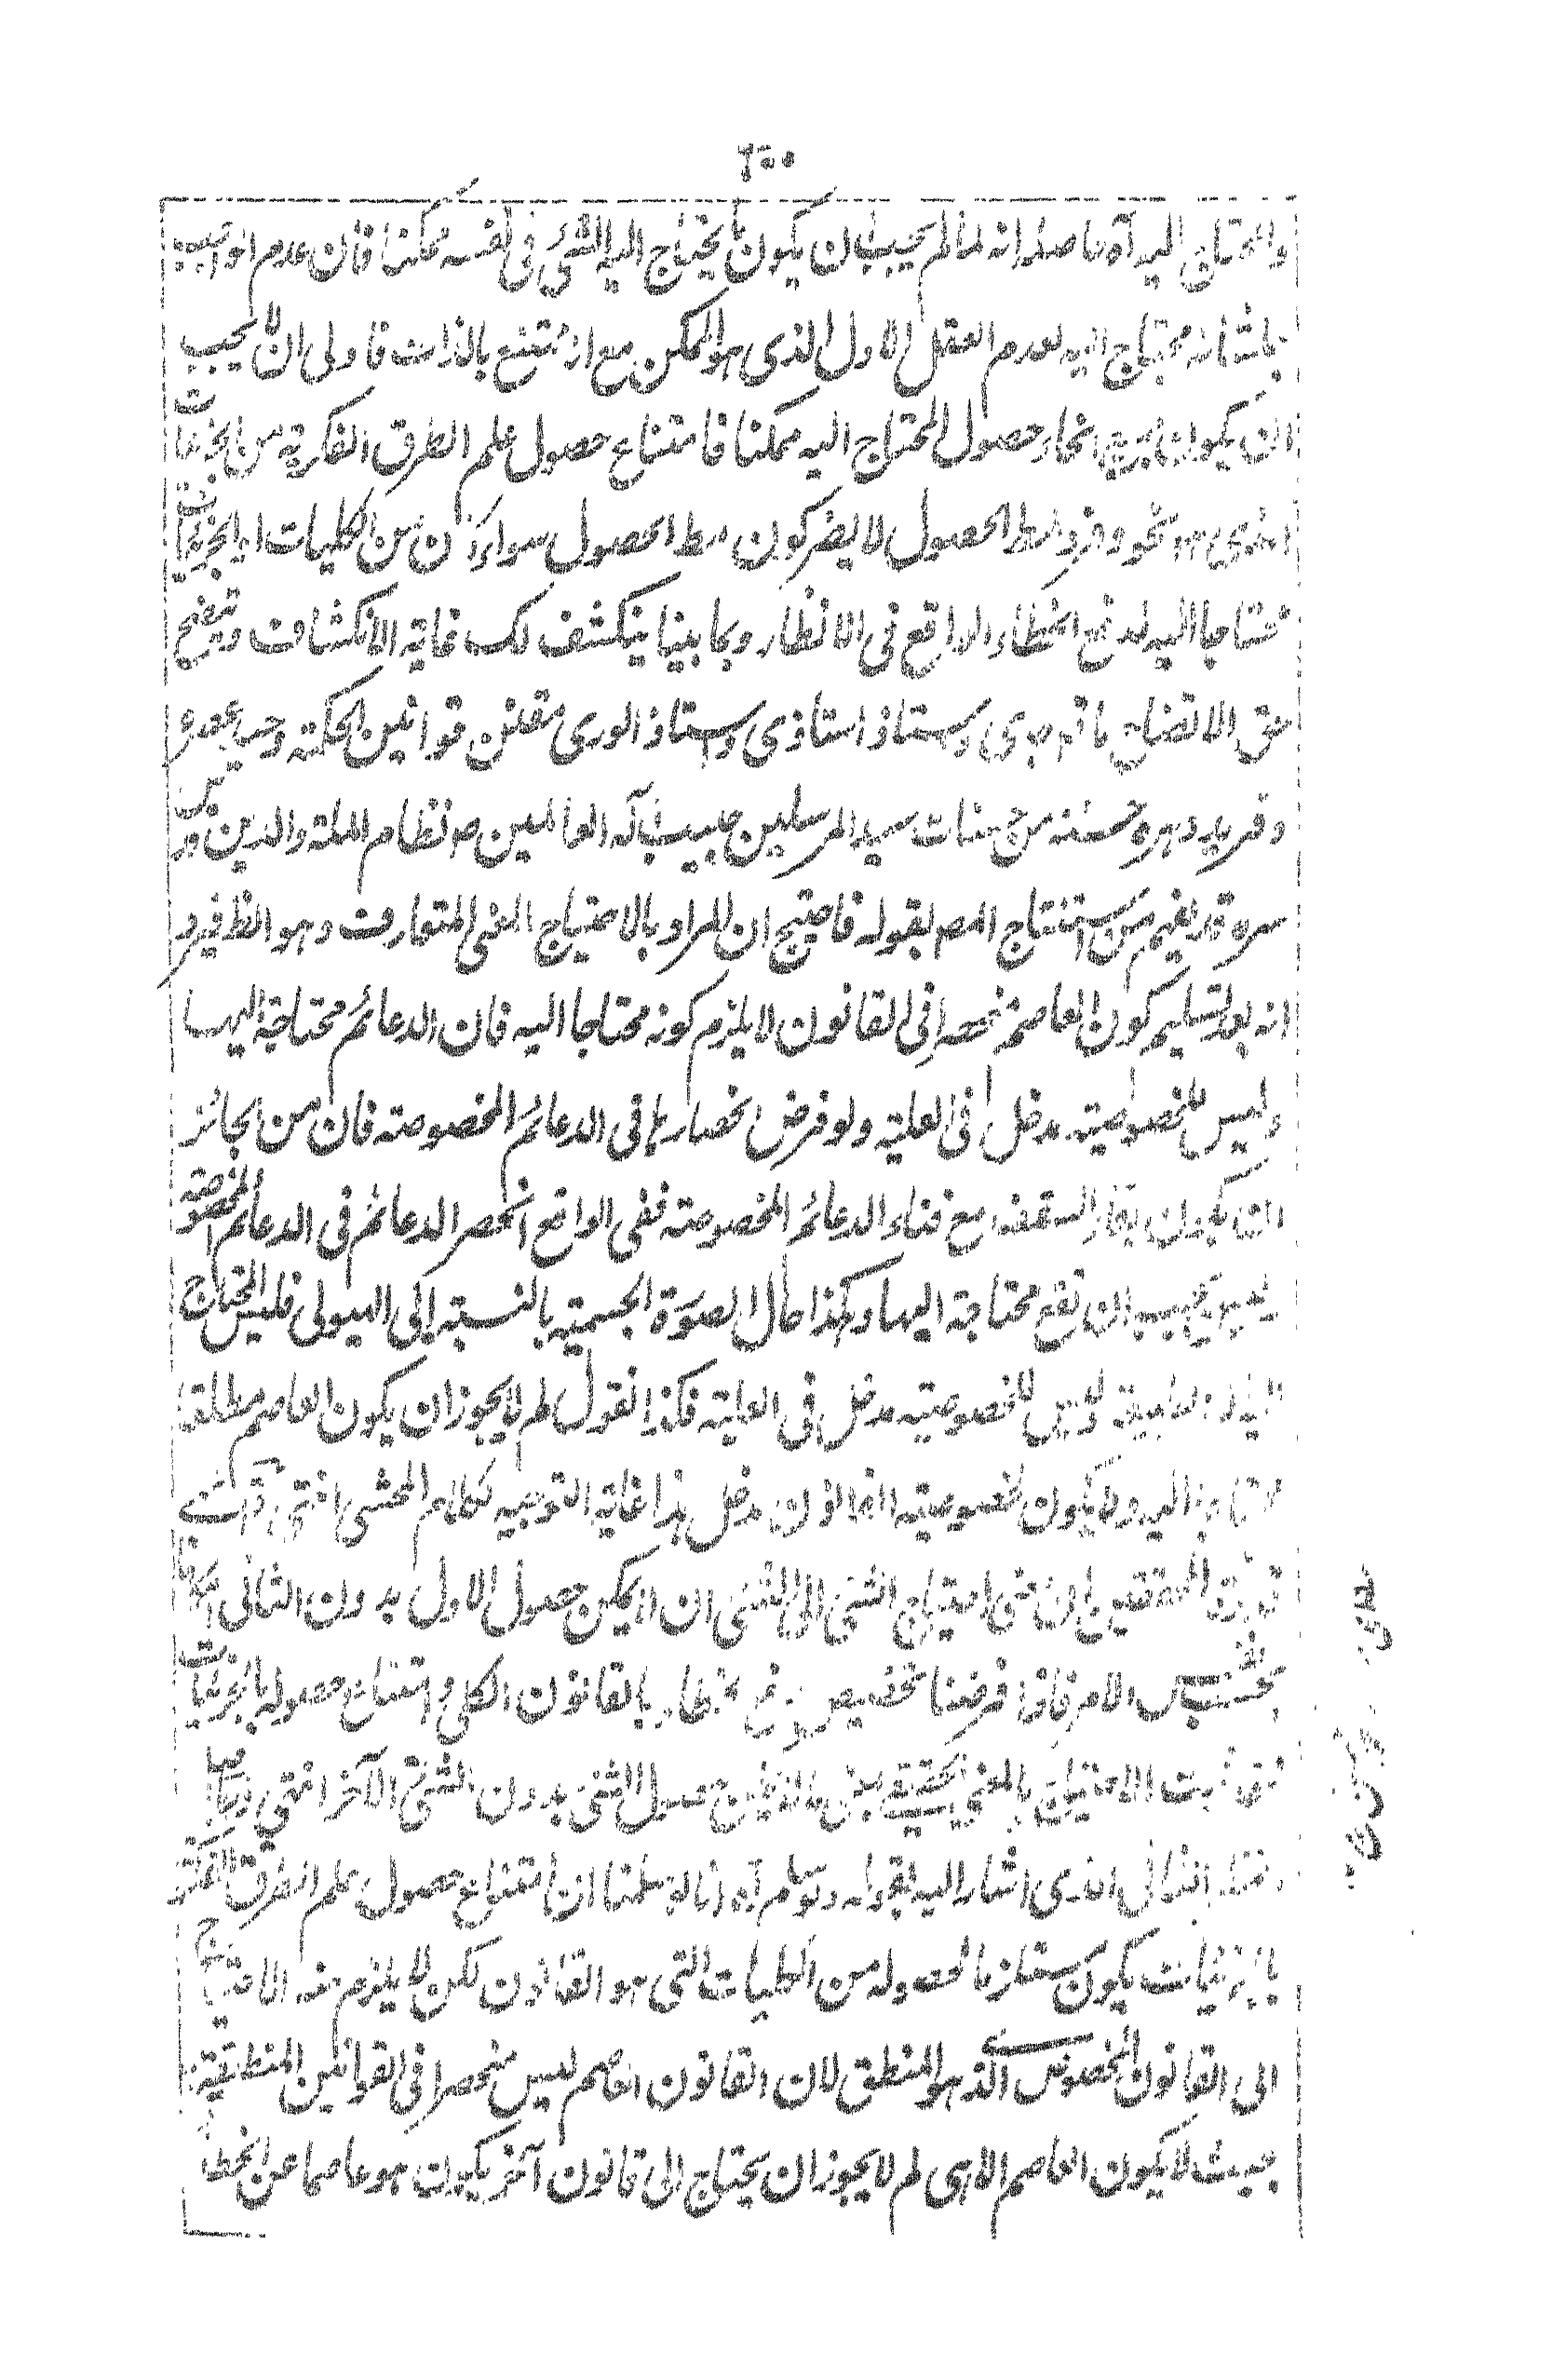 ٢٠٠
والمحتاج اليه آه حاصله انه لما لم يجب ان يكون ما يحتاج اليه الشئ فى نفسه ممكنا فان عدم الواجب
جل شانه محتاج اليه لعدم العقل الاول الذى هو الممكن مع انه ممتنع بالذات فاولى ان لا يجب
ان يكون جميع انحاء حصول المحتاج اليه ممكنا فامتناع حصول علم الطرق الفكرية من الجزئيات
الذى هو نحو وفرد لمط الحصول لا يضر كون مط الحصول سواء كان من الكليات او الجزئيات
محتاجا اليه لدفع الخطاء الواقع فى الانظار وبما بينا ينكشف لك غاية الانكشاف ويتضح
حق الاتضاح ما قم جدى واستاذ استاذى واستاذ الورى مقنن قوانين الحكمة وحيد عصره
وفريد دهره حسنة من حسنات سيد المرسلين حبيب اله العالمين نظام الملة والدين
سره قد يفهم من استنتاج المص بقوله فاحتيج ان المراد بالاحتياج المعنى المتعارف وهو الظ فيرد
انه بعد تسليم كون العاصم منحصرا فى القانون لا يلزم كونه محتاجا اليه فان الدعائم محتاجة اليها
وليس للخصوصية مدخل فى العلية ولو فرض انحصارها فى الدعائم المخصوصة فان من الجائز
ان يكون بقاء السقف مع فناء الدعائم المخصوصة ففى الواقع انحصر الدعائم فى الدعائم المخصوصة
يجب ان تقع محتاجة اليها وهكذا حال الصورة الجسمية بالنسبة الى الهيولى فليس المحتاج
اليه الا الطبيعة وليس للخصوصية مدخل فى العلية فكذا نقول لم لا يجوز ان يكون العاصم مطلقا
محتاجا اليه ولا يكون لخصوصية القانون مدخل هذا غاية التوجيه لكلام المحشى انتهى
المحققين بان معنى احتياج الشئ الى الشئ ان لا يمكن حصول الاول بدون الثانى
بحسب نفس الامر فاذا فرضنا تخصيص رفع الخطاء بالقانون الكلى وامتناع حصوله بالجزئيات
فقد ثبت الاحتياج بالمعنى الحقيقى حصول الشئ بدون الشئ الآخر انتهى
الثانى الذى اشار اليه بقوله ولو سلم آه انا لو سلمنا ان امتناع حصول علم الطرق الفكرية
بالجزئيات يكون مستلزما لحصوله من الكليات التى هو القانون لكن لا يلزم منه الاحتياج
الى القانون المخصوص الذى هو المنطق لان القانون العاصم ليس منحصرا فى القوانين المنطقية
بحيث لا يكون العاصم الا هى لم لا يجوز ان يحتاج الى قانون آخر يكون هو عاصما عن الخطا